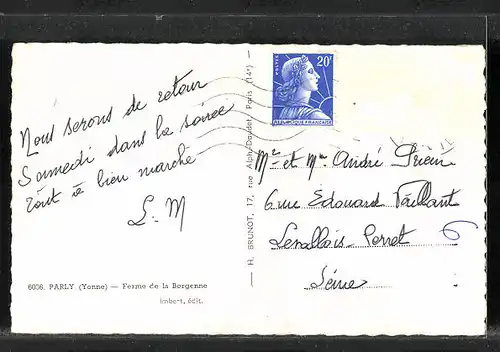 Nous serons de retour
Samedi dans la soirée
Tout à bien marché
L. M
6036. PARLY (Yonne) — Ferme de la Borgenne
Imbert, édit.
H. BRUNOT, 17, rue Alph.-Daudet, Paris (14e)
POSTES 20F
REPUBLIQUE FRANÇAISE
Mr et Me André
6 rue Edouard Vaillant
Levallois-Perret 6
Seine